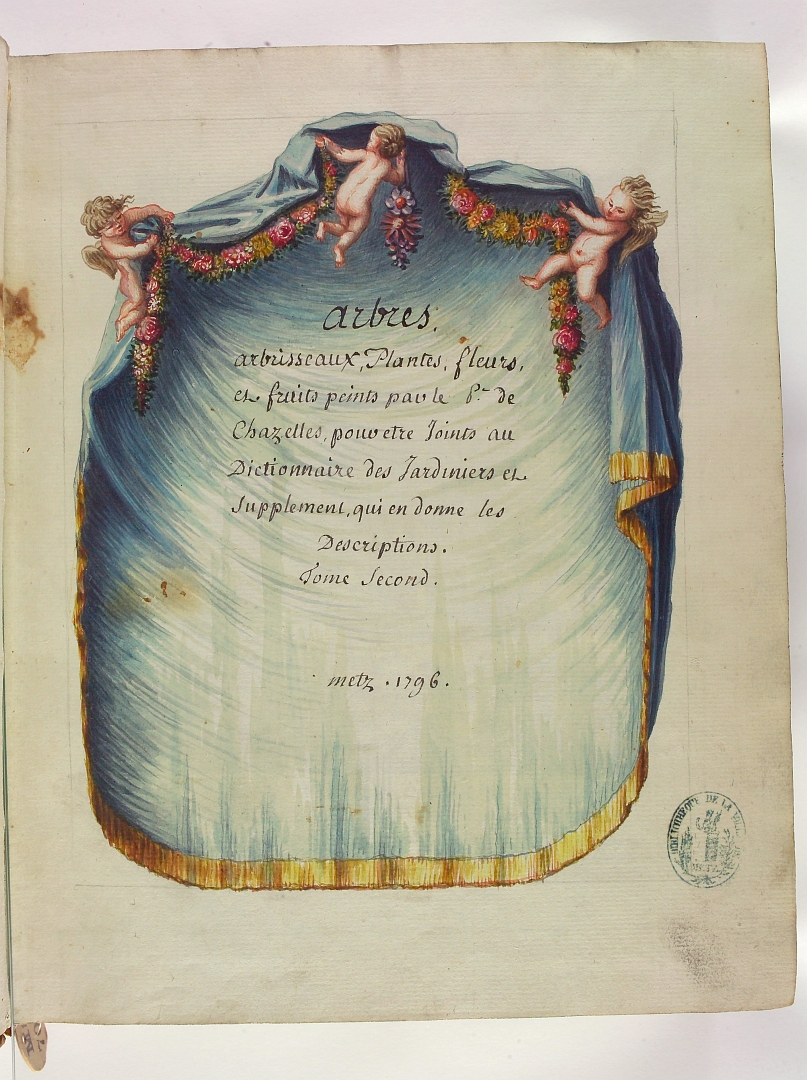 arbres,
arbrisseaux, Plantes, fleurs,
et fruits peints par le Sr. de
Chazelles, pour etre Joints au
Dictionnaire des Jardiniers et
Supplement, qui en donne les
Descriptions.
Tome Second.
metz . 1796.
BIBLIOTHEQUE DE LA VILLE
METZ